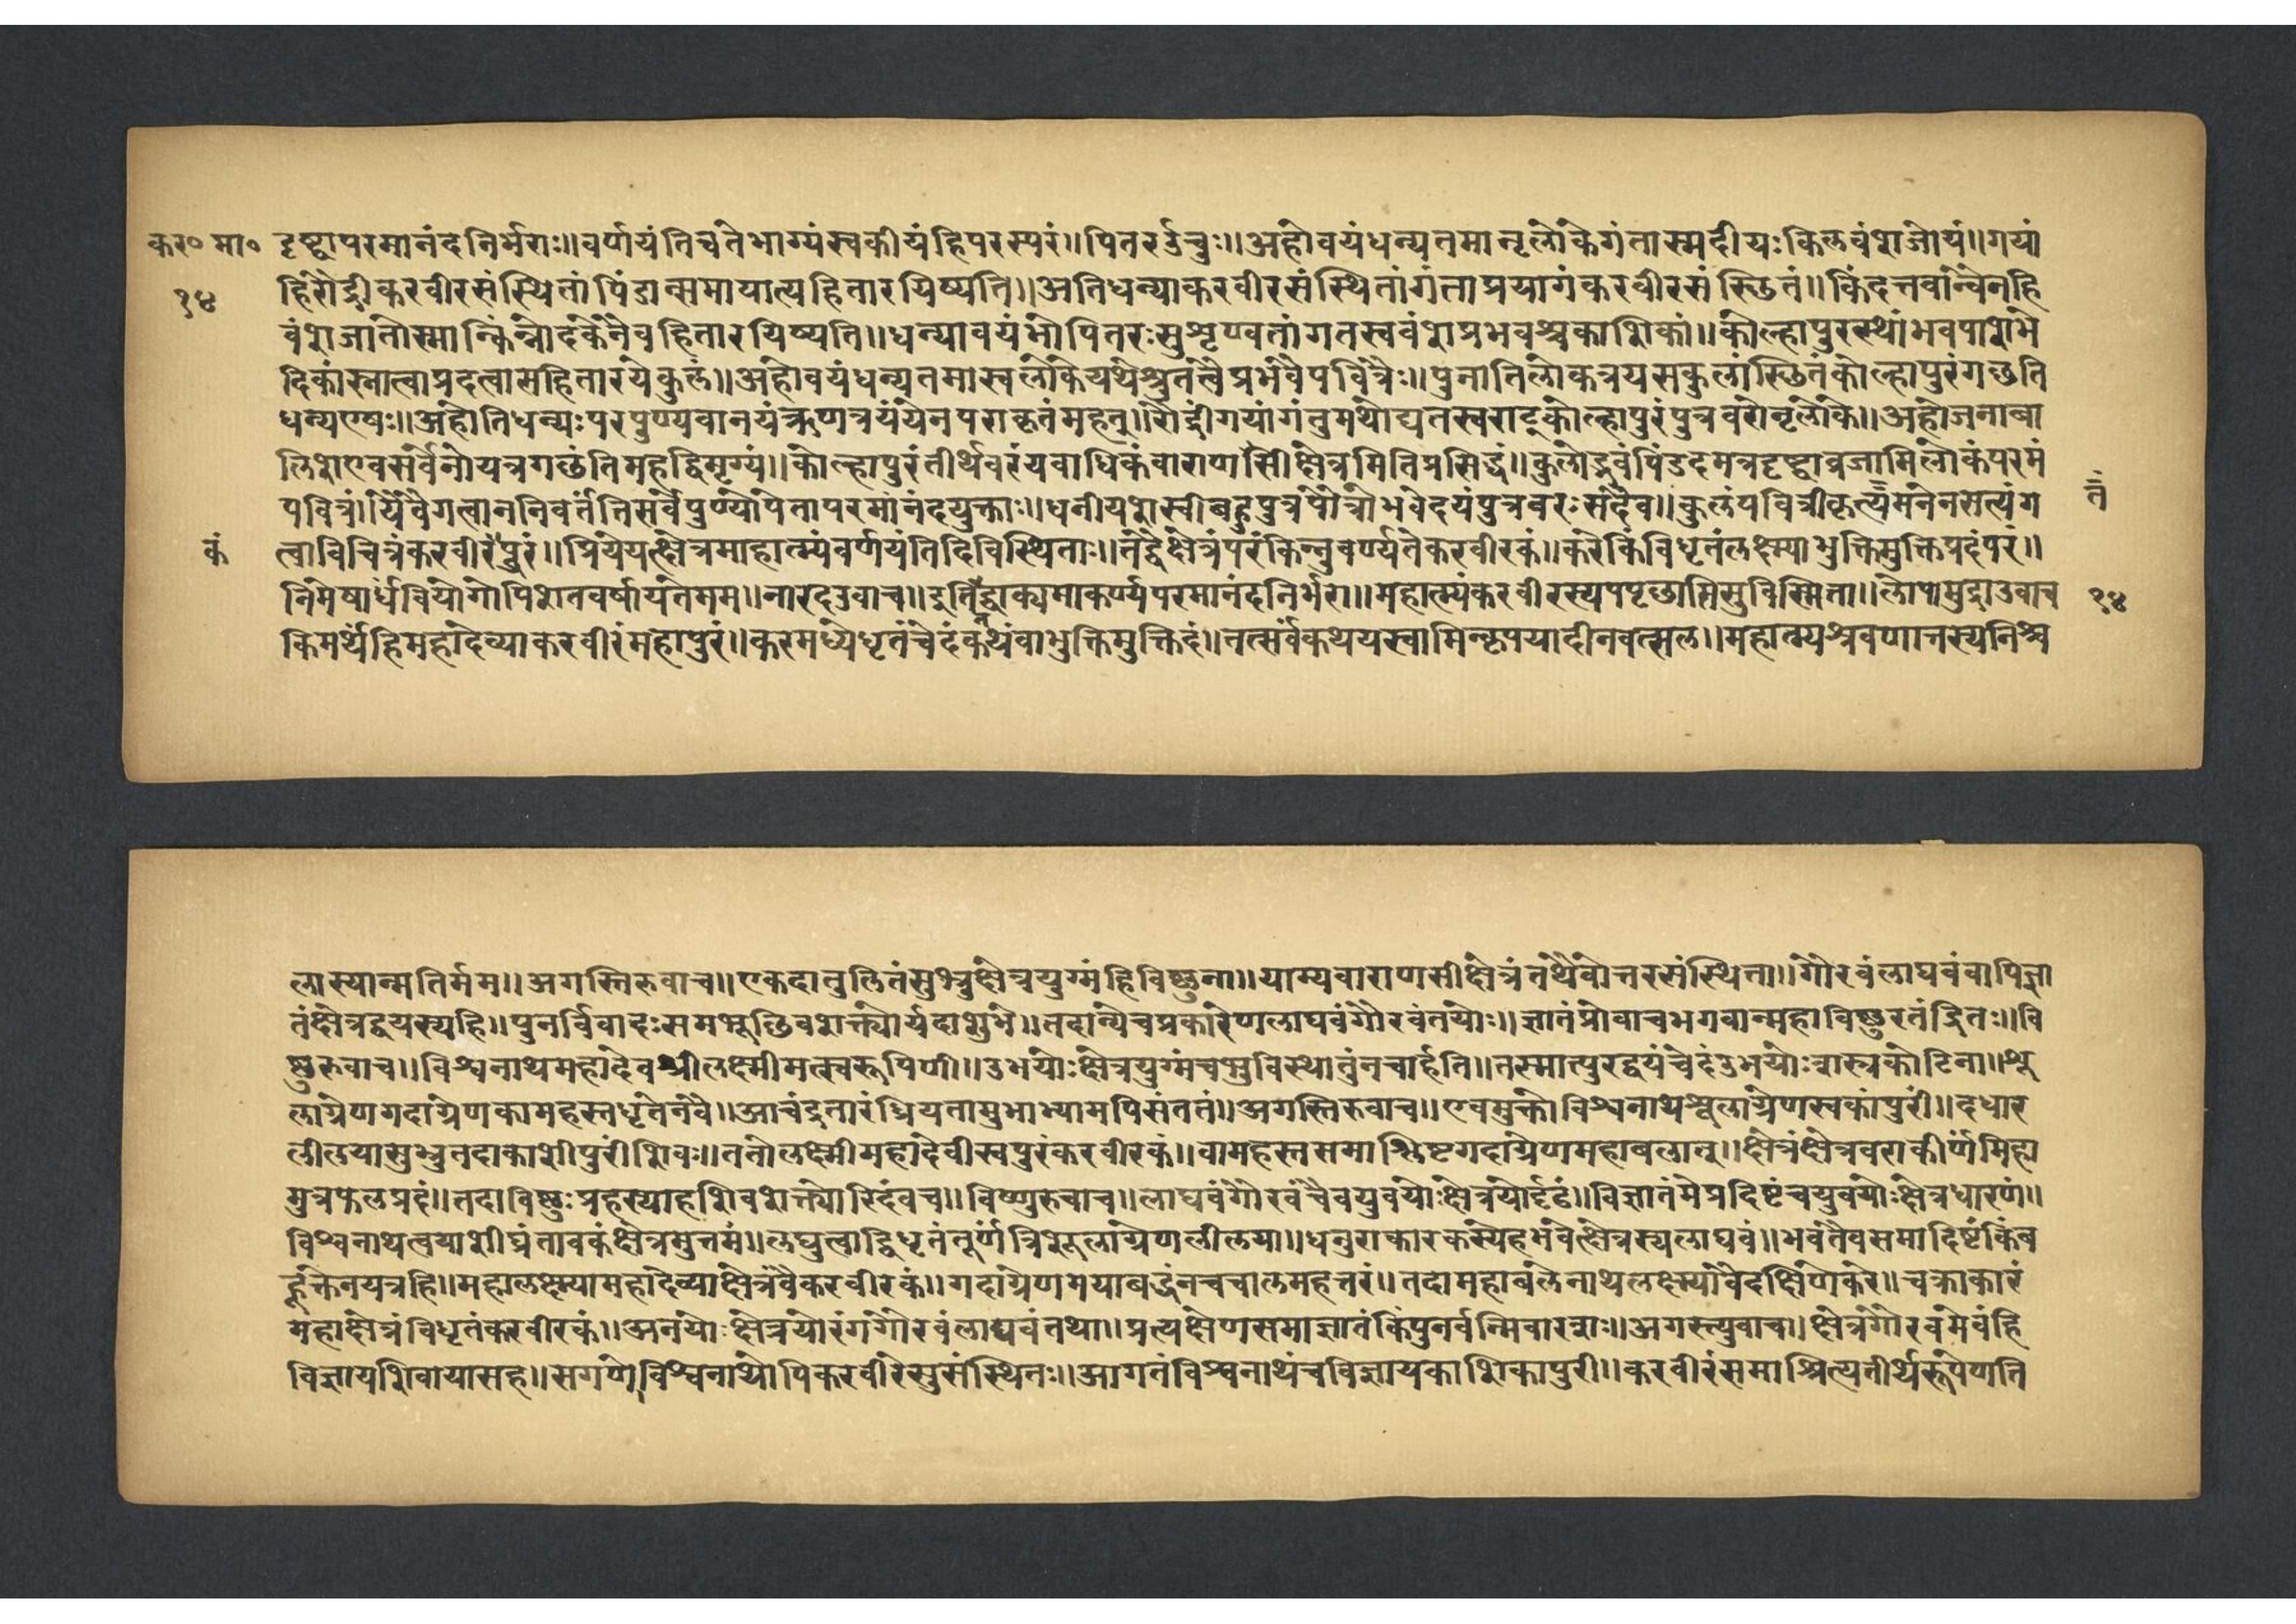 कर० मा० दृष्ट्वापरमानंदनिर्भराः॥वर्णयंतिचतेभाग्यंस्वकीयंहिपरस्परं॥पितरऊचुः॥अहोवयंधन्यतमानृलोकेगंतास्मदीयःकिलवंशजोयं॥गयां
१४ हिरौद्रीकरवीरसंस्थितांपिंडान्समायात्यहितारयिष्यति॥अतिधन्याकरवीरसंस्थितांगंताप्रयागंकरवीरसंस्छितं॥किंदत्तवांन्वैनहि
वंशजातोस्मान्किंन्नोदकेनैवहितारयिष्यति॥धन्यावयंभोपितरःसुशृण्वतांगतस्ववंशप्रभवश्चकाशिकां॥कोल्हापुरस्थांभवपाशभे
दिकांस्नात्वाप्रदत्वासहितारयेकुलं॥अहोवयंधन्यतमास्वर्लोकेयथेश्रुतत्वैप्रभवैपवित्रैः॥पुनातिलोकत्रयसकुलांस्छितंकोल्हापुरंगछति
धन्यएषः॥अहोतिधन्यःपरपुण्यवानयंऋणत्रयंयेनपराकृतंमहत्॥रौद्रींगयांगंतुमथोद्यतस्वराट्कोल्हापुरंपुत्रवरोनृलोके॥अहोजनाबा
लिशएवसर्वेनोयत्रगछंतिमहद्विमृग्यं॥कोल्हापुरंतीर्थवरंयवाधिकंवाराणसीक्षेत्रमितिप्रसिद्धं॥कुलोद्भवंपिंडदमत्रदृष्ट्वाव्रजामिलोकंपरमं
पवित्रं।येवैगत्वाननिवर्तंतिसर्वेपुण्योपेतापरमानंदयुक्ताः॥धनीयशस्वीबहुपुत्रपौत्रोभवेदयंपुत्रवरःसदैव॥कुलंपवित्रीकृत्यमनेनसत्यंग तं
कं त्वाविचित्रंकरवीरंपुरं॥प्रियेयत्क्षेत्रमाहात्म्यंवर्णयंतिदिविस्थिताः॥तद्वैक्षेत्रंपरंकिन्नुवर्ण्यतेकरवीरकं॥करेकिंविधृतंलक्ष्म्याभुक्तिमुक्तिप्रदंपरं॥
निमेषार्धवियोगोपिशतवर्षायतेमम॥नारदउवाच॥इतिद्वाक्यमाकर्ण्यपरमानंदनिर्भरा॥महात्म्यंकरवीरस्यपपृछातिसुविस्मिता॥लोपामुद्राउवाच १४
किमर्थेहिमहादेव्याकरवीरंमहापुरं॥करमध्येधृतंचेदंकथंवाभुक्तिमुक्तिदं॥तत्सर्वंकथयस्वामिन्कृपयादीनवत्सल॥महात्म्यश्रवणात्तस्यनिश्च
लास्यान्मतिर्मम॥अगस्तिरुवाच॥एकदातुलितंसुभ्रुक्षेत्रयुग्मंहिविष्णुना॥याम्यवाराणसीक्षेत्रंतथैवोत्तरसंस्थिता॥गौरवंलाघवंवापिज्ञा
तंक्षेत्रद्वयस्यहि॥पुनर्विवादःसमभूछिवशक्त्योर्यदाशुभे॥तदान्येचप्रकारेणलाघवंगौरवंतयोः॥ज्ञातंप्रोवाचभगवान्महाविष्णुरतंद्रितः॥वि
ष्णुरुवाच॥विश्वनाथमहादेवश्रीलक्ष्मीमत्स्वरूपिणी॥उभयोःक्षेत्रयुग्मंचभुविस्थातुंनचार्हति॥तस्मात्पुरद्वयंचेदंउभयोःशस्त्रकोटिना॥शू
लाग्रेणगदाग्रेणकामहस्तधृतेनवै॥आचंद्रतारंध्रियतामुभाभ्यामपिसंततं॥अगस्तिरुवाच॥एवमुक्तोविश्वनाथशूलाग्रेणस्वकांपुरीं॥दधार
लीलयासुभ्रुतदाकाशीपुरींशिवः॥ततोलक्ष्मीमहादेवीस्वपुरंकरवीरकं॥वामहस्तसमाश्लिष्टगदाग्रेणमहाबलात्॥क्षेत्रंक्षेत्रवराकीर्णमिहा
मुत्रफलप्रदं॥तदाविष्णुःप्रहस्याहशिवशक्त्योरिदंवच॥विष्णुरुवाच॥लाघवंगौरवंचैवयुवयोःक्षेत्रयोर्दृढं॥विज्ञातंमेप्रदिष्टंचयुवयोःक्षेत्रधारणं॥
विश्वनाथत्वयाशीघ्रंतावकंक्षेत्रमुत्तमं॥लघुत्वाद्विधृतंतूर्णंत्रिशूलाग्रेणलीलया॥धनुराकारकस्येहभवेत्क्षेत्रस्यलाघवं॥भवंतैवसमादिष्टंकिंब
हूक्तेनयत्रहि॥महालक्ष्म्यामहादेव्याक्षेत्रंवैकरवीरकं॥गदाग्रेणमयाबद्धंनचचालमहत्तरं॥तदामहाबलेनाथलक्ष्म्यावैदक्षिणेकरे॥चक्राकारं
महाक्षेत्रंविधृतंकरवीरकं॥अनयोःक्षेत्रयोरंगगौरवंलाघवंतथा॥प्रत्यक्षेणसमाज्ञातंकिंपुनर्वन्मिवारत्राः॥अगस्त्युवाच॥क्षेत्रंगौरवमेवंहि
विज्ञायशिवायासह॥सगणोविश्वनाथोपिकरवीरेसुसंस्थितः॥आगतंविश्वनाथंचविज्ञायकाशिकापुरी॥करवीरंसमाश्रित्यतीर्थरूपेणति